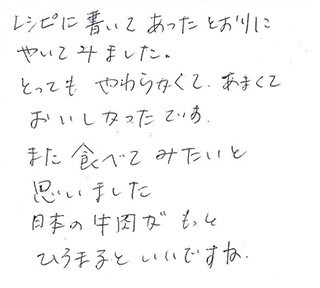 レシピに書いてあったとおりに
やいてみました。
とっても やわらかくて、あまくて
おいしかったです。
また食べてみたいと
思いました
日本の牛肉がもっと
ひろまるといいですね.